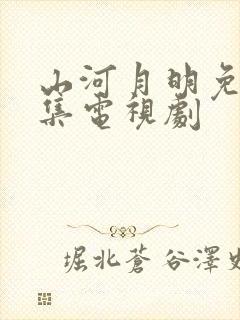 山河月明免
集電視劇
堀北蒼谷澤